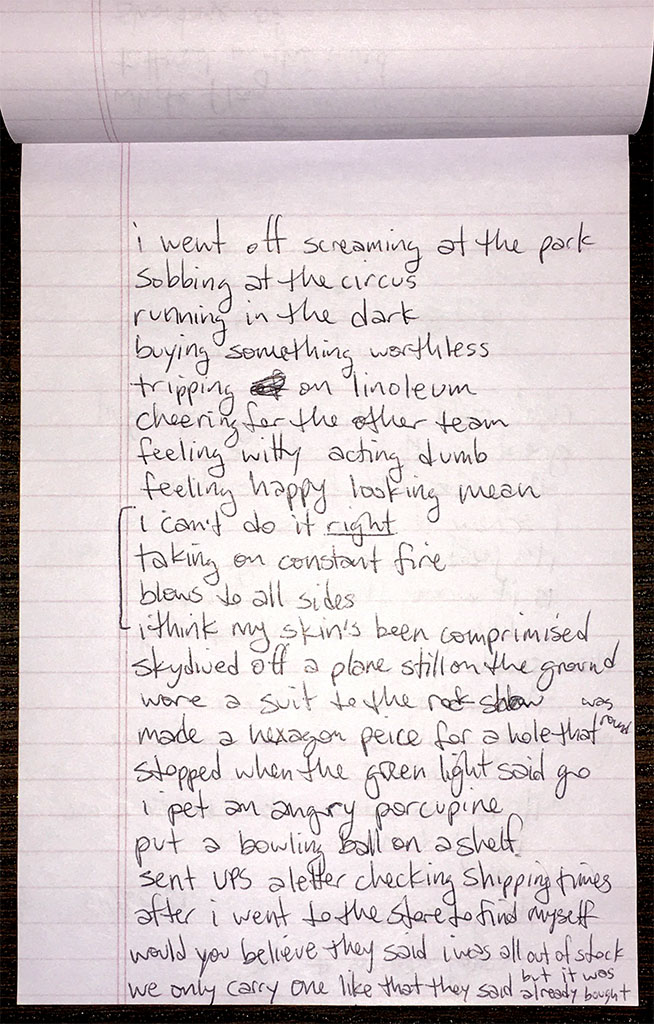 i went off screaming at the park
sobbing at the circus
running in the dark
buying something worthless
tripping on linoleum
cheering for the other team
feeling witty acting dumb
feeling happy looking mean
i can't do it right
taking on constant fire
blows to all sides
i think my skin's been comprimised
skydived off a plane still on the ground
wore a suit to the rock show
made a hexagon peice for a hole that was round
stopped when the green light said go
i pet an angry porcupine
put a bowling ball on a shelf
sent UPS a letter checking shipping times
after i went to the store to find myself
would you believe they said i was all out of stock
we only carry one like that they said but it was already bought